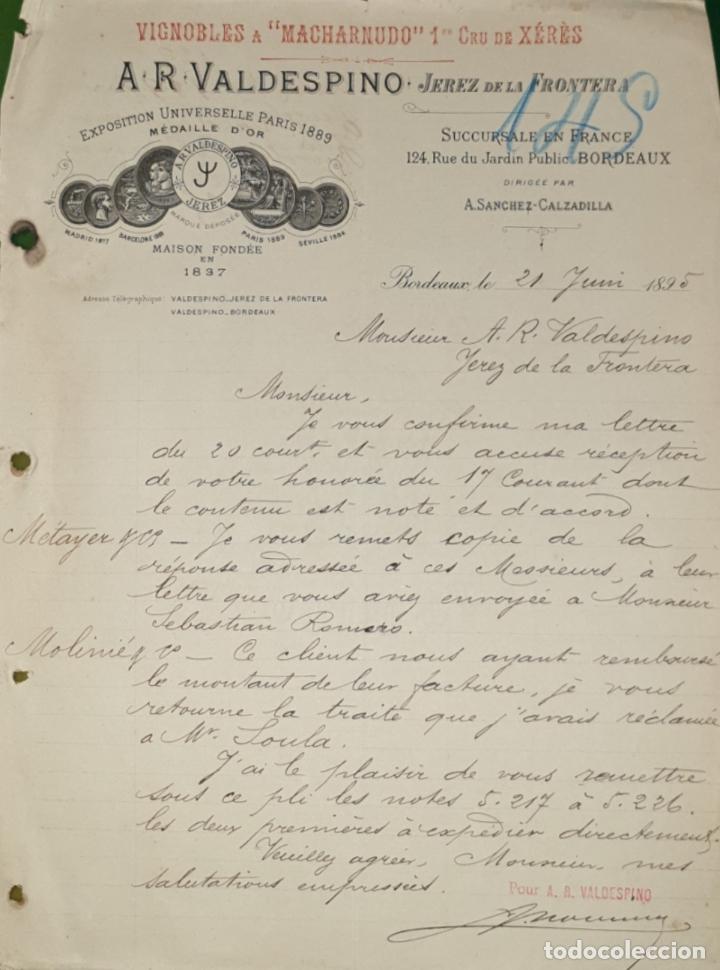 VIGNOBLES A "MACHARNUDO" 1ER CRU DE XÉRÈS
A·R·VALDESPINO· JEREZ DE LA FRONTERA
EXPOSITION UNIVERSELLE PARIS 1889
MÉDAILLE D'OR
A.R.VALDESPINO
JEREZ
MARQUE DÉPOSÉE
MADRID 1877 BARCELONE 1888 PARIS 1889 SÉVILLE 1884
MAISON FONDÉE
EN
1837
Adresse Télégraphique: VALDESPINO_JEREZ DE LA FRONTERA
VALDESPINO_BORDEAUX
SUCCURSALE EN FRANCE
124, Rue du Jardin Public. BORDEAUX
DIRIGÉE PAR
A. SANCHEZ-CALZADILLA
Bordeaux, le 21 Juin 1895
Monsieur A. R. Valdespino
Jerez de la Frontera
Monsieur,
Je vous confirme ma lettre
du 20 court, et vous accuse réception
de votre honorée du 17 Courant dont
le contenu est noté et d'accord.
Métayer & Co – Je vous remets copie de la
réponse adressée à ces Messieurs, à leur
lettre que vous aviez envoyée a Monsieur
Sebastian Romero.
Molinié & Co – Ce client nous ayant remboursé
le montant de leur facture, je vous
retourne la traite que j'avais réclamée
a Mr. Soula.
J'ai le plaisir de vous remettre
sous ce pli les notes S.217 à S.226.
les deux premières à expédier directement,
Veuillez agréer, Monsieur, mes
salutations empressées.
Pour A. R. VALDESPINO
todocoleccion